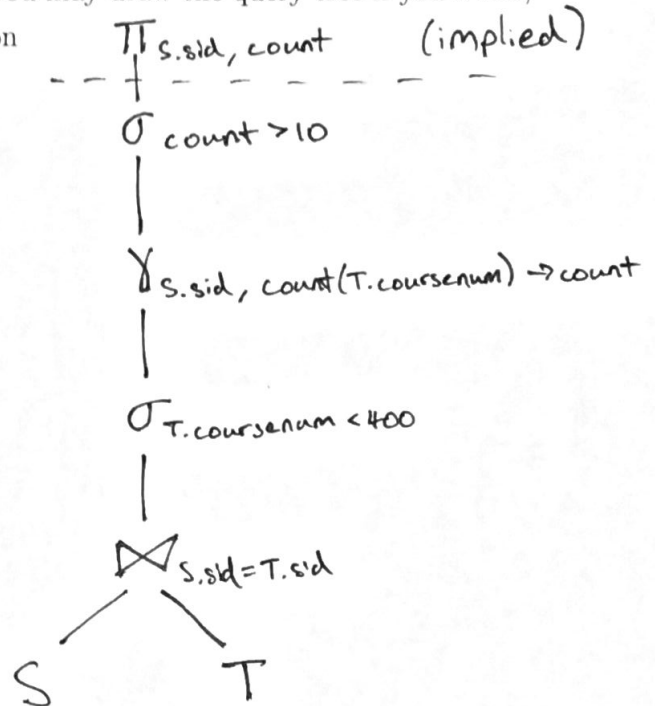 Π S.sid, count (implied)
on
σ count > 10
γ S.sid, count(T.coursenum) → count
σ T.coursenum < 400
⋈ S.sid = T.sid
S T